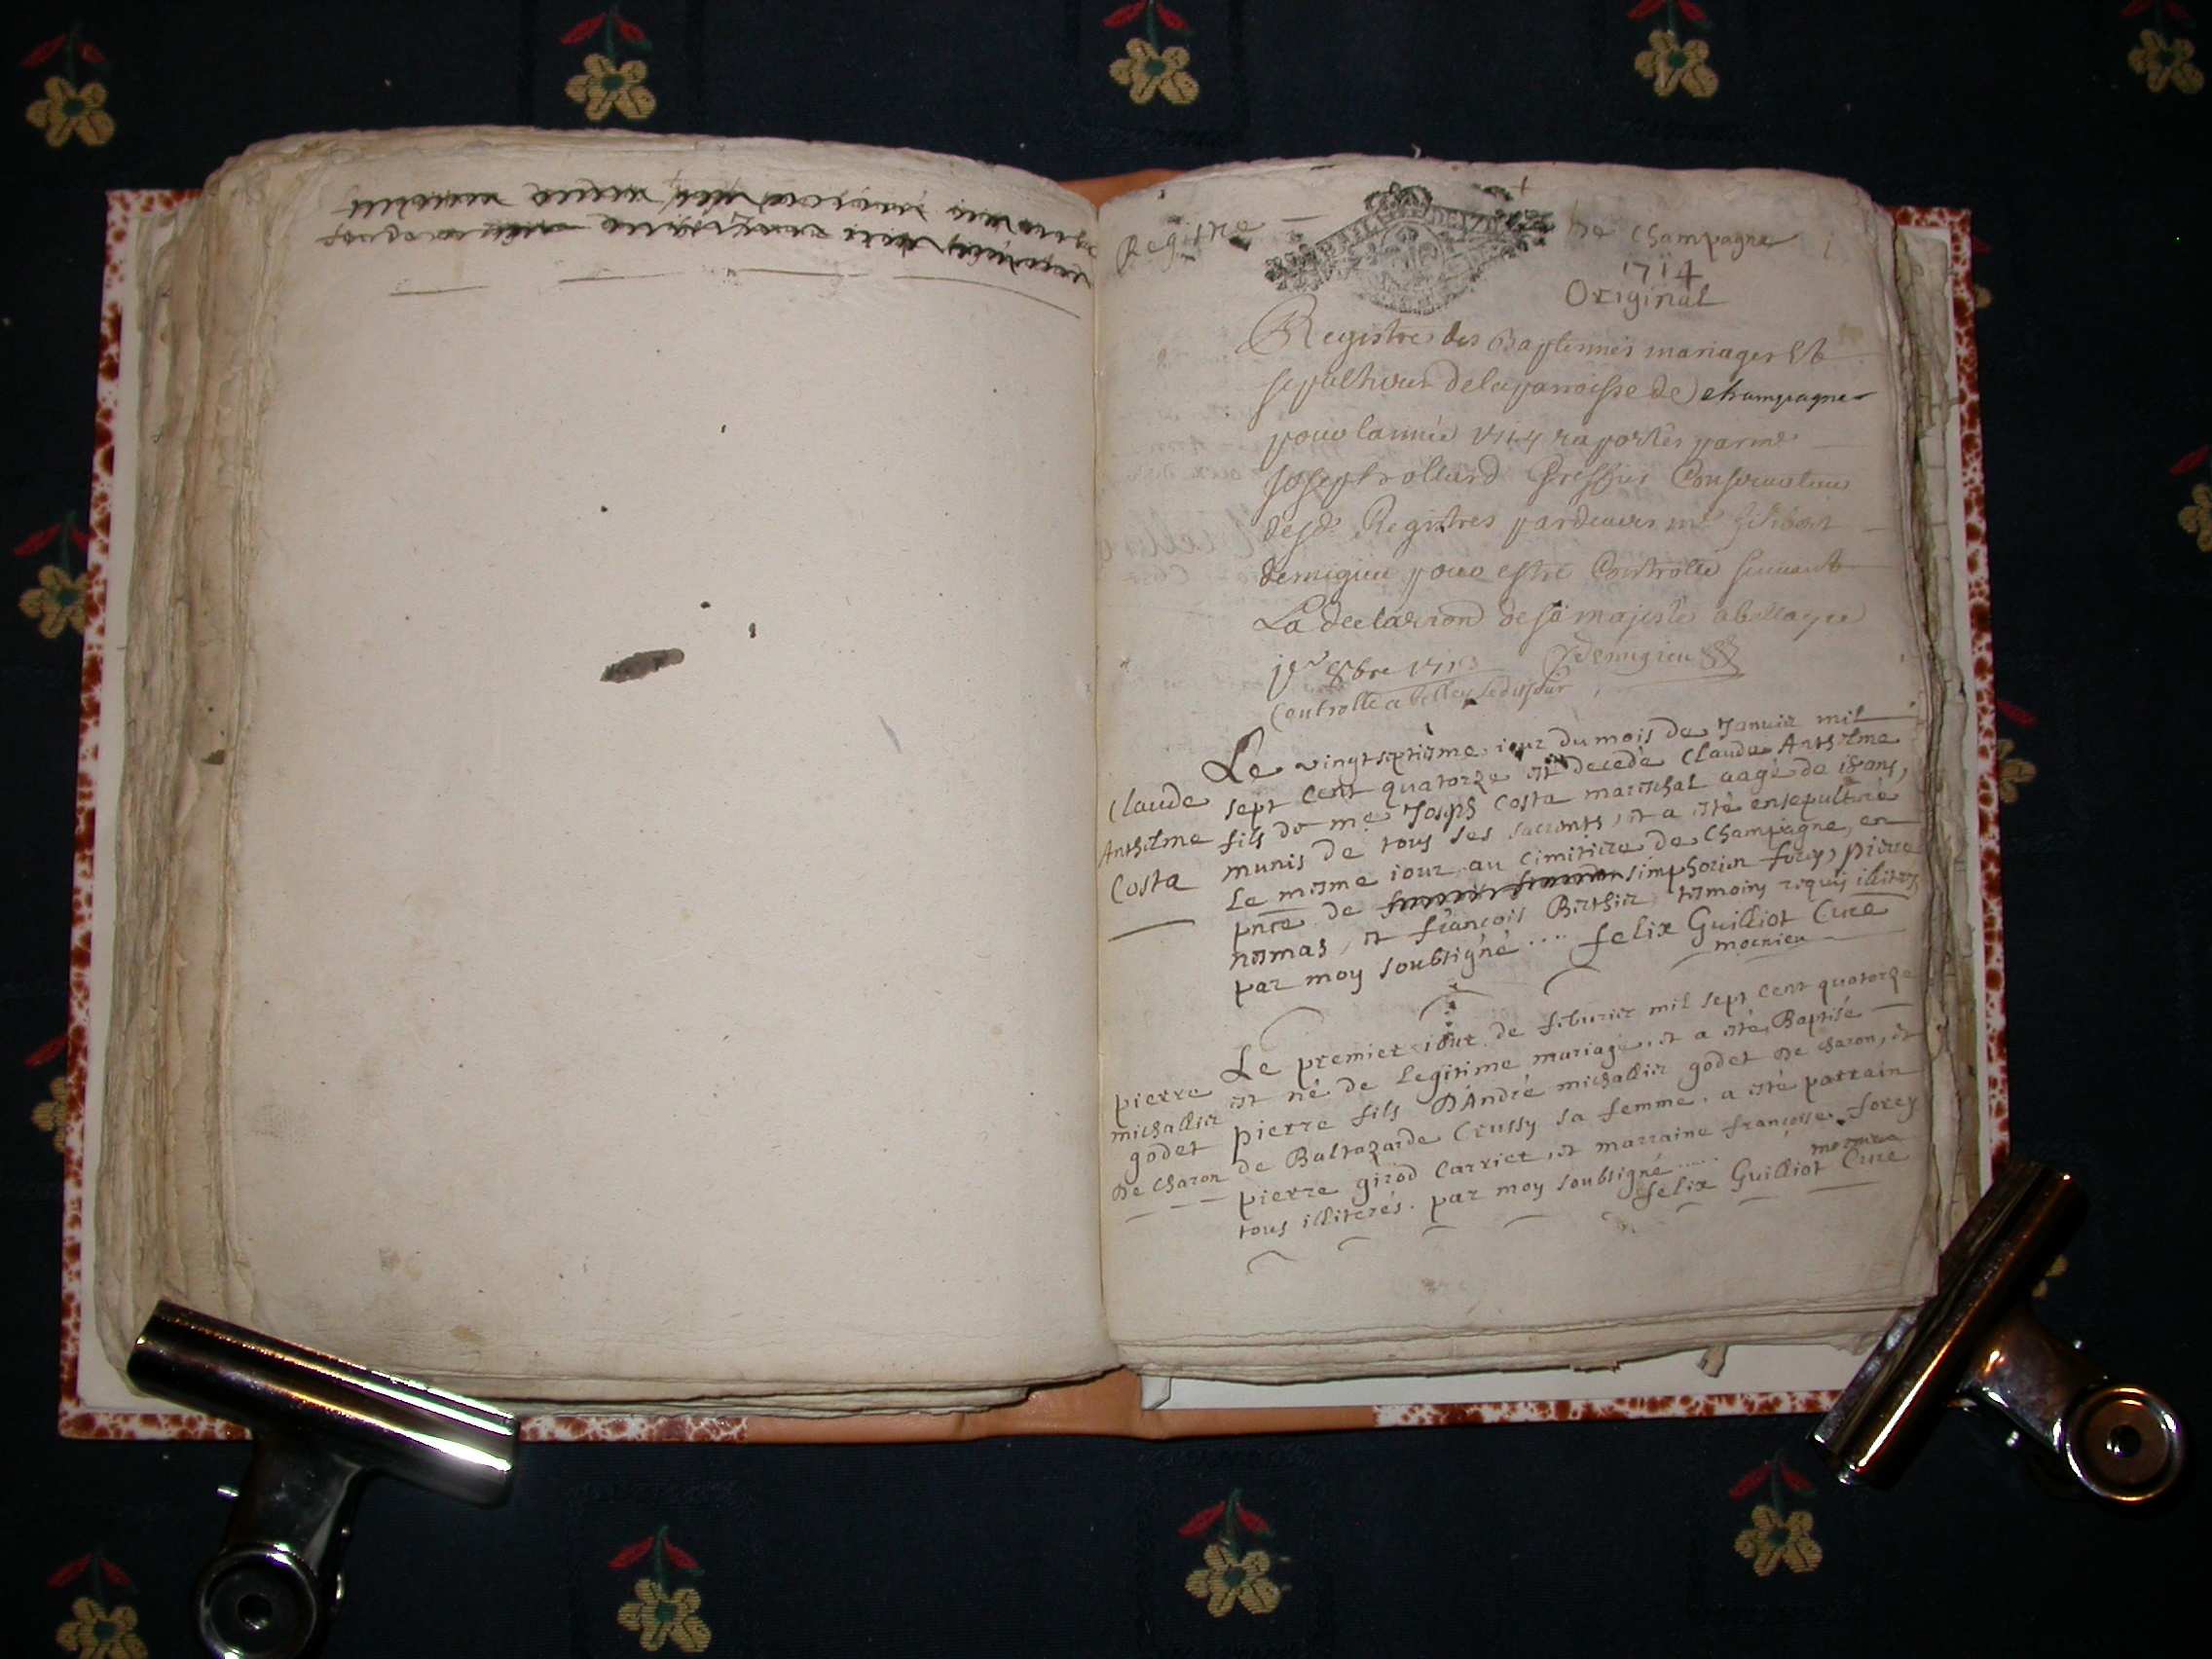 Registre
De Champagne
1714
Original
Registre des Baptemmes mariages Et
sepultures de la parroisse de champagne
pour lannée 1714 raportés par me
Joseph rollard Greffier Conservateur
desd. Registres pardevers mr filibert
demigieu pour estre Controllé suivant
La declarãon de sa majesté a belley ce
jer 8bre 1713 Demigieu
Controllé a belley ledit jour
Le vingtseptiéme iour du mois de Januier mil
sept cent quatorze est decedé Claude Anthelme
fils de me Joseph Costa mareschal aagé de 18 ans,
munis de tous ses sacremts, et a esté ensepulturé
Le mesme iour au cimitiere de Champagne, en
pnce de simphorien forey, pierre
nemas, et françois Berthier, tesmoins requis illiterés
par moy soubsigné .... felix Guilliot Cure
mornieu
Claude
Anthelme
Costa
Le premier iour de feburier mil sept cent quatorze
est né de legitime mariage, et a esté Baptisé
pierre fils D'André michallier godet De charon, et
de Baltazarde Crussy sa femme. a esté parrain
pierre girod Carrier, et marraine françoise forey
tous illiterés. par moy soubsigné .....
felix Guilliot Cure
mornieu
pierre
michallier
godet
De charon